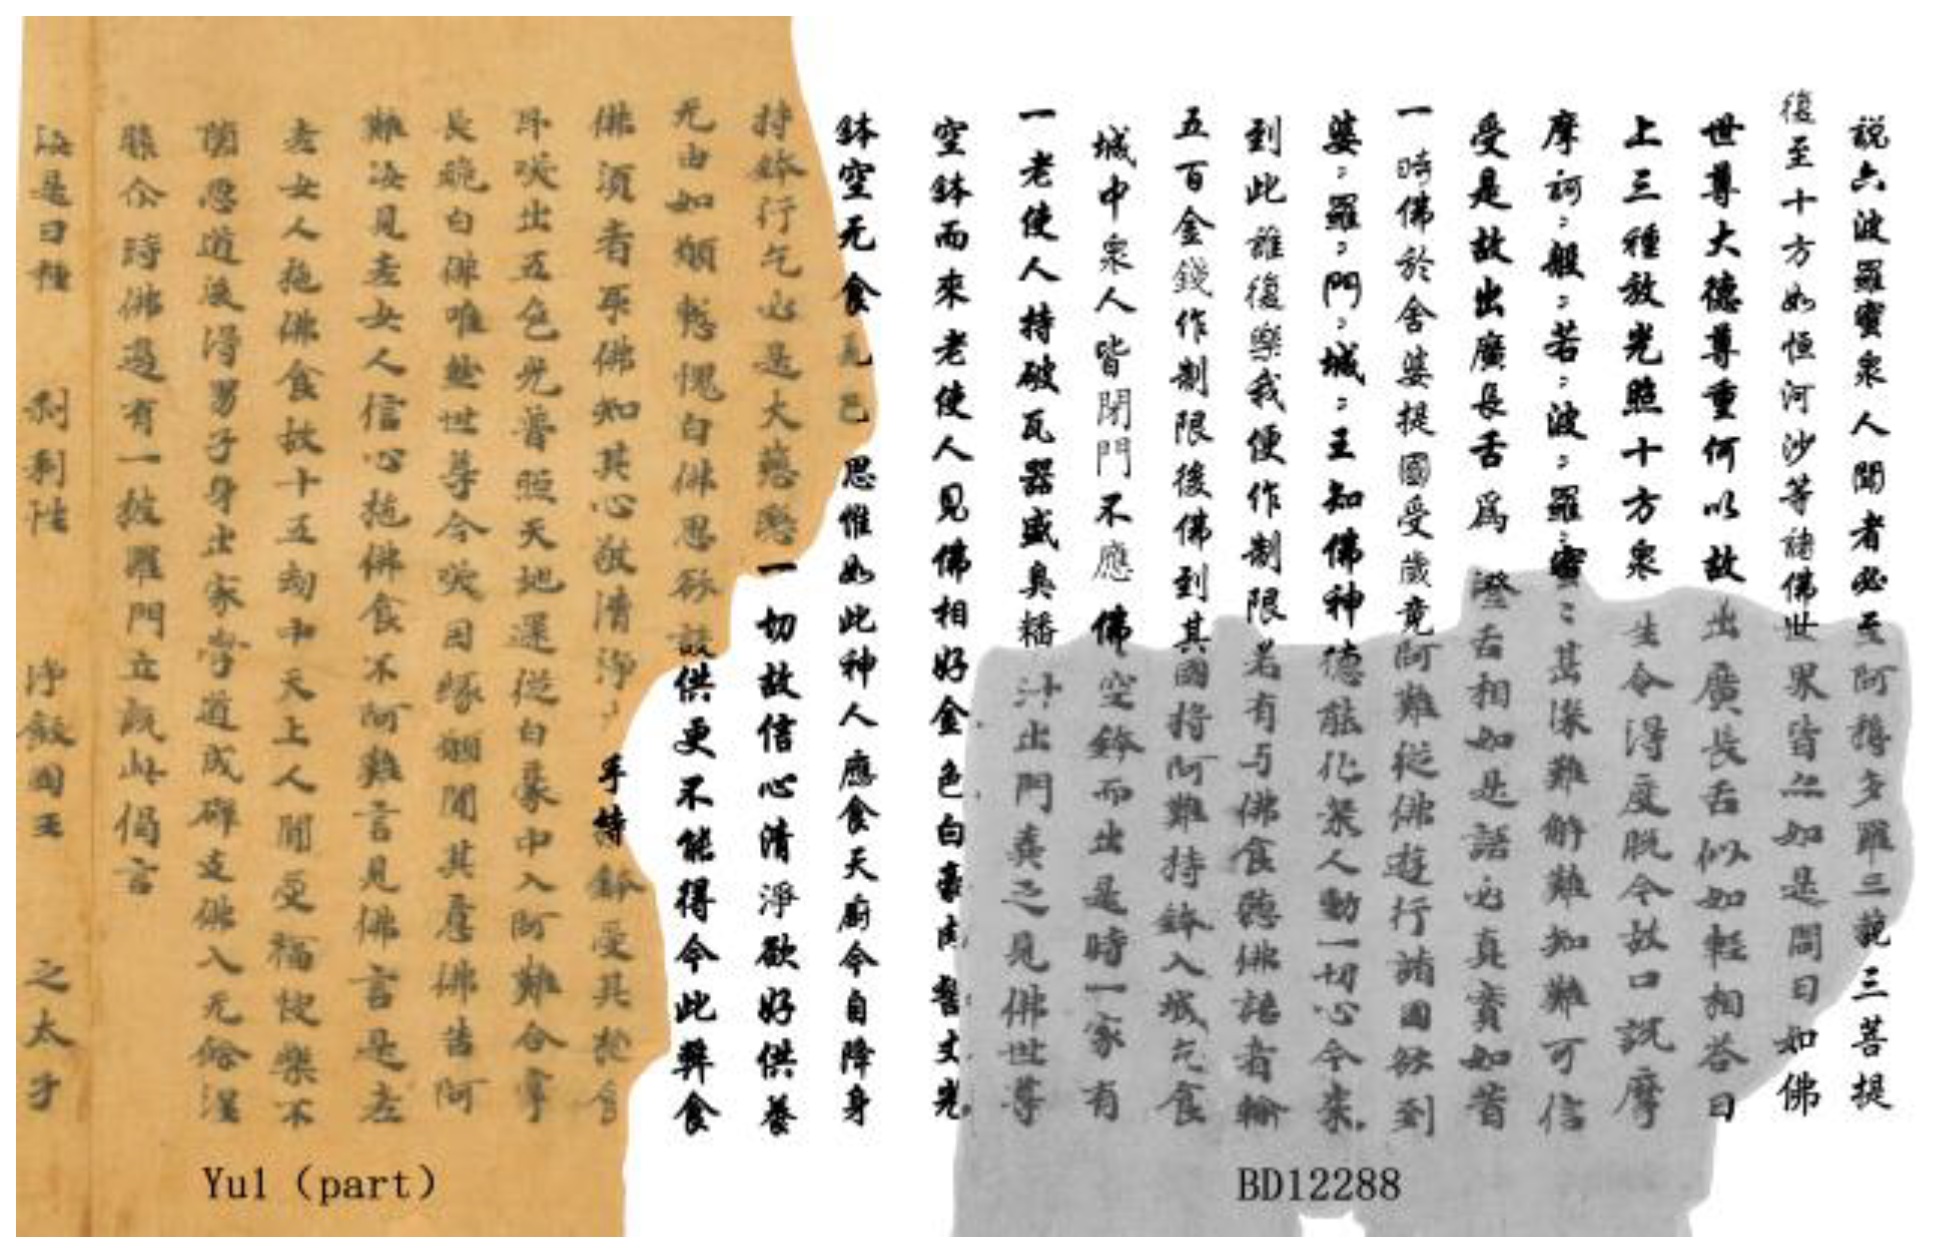 説六波羅蜜衆人聞者必至阿耨多羅三藐三菩提
復至十方如恒河沙等諸佛世界皆亦如是問曰如佛
世尊大德尊重何以故出廣長舌似如輕相答曰
上三種放光照十方衆生令得度脫今故口説摩
摩訶般若波羅蜜甚深難解難知難可信
受是故出廣長舌爲證舌相如是語必真實如昔
一時佛於舍婆提國受歲竟阿難從佛遊行諸國欲到
婆羅門城王知佛神德能化衆人動一切心今來
到此誰復樂我便作制限若有与佛食聽佛語者輸
五百金錢作制限後佛到其國將阿難持鉢入城乞食
城中衆人皆閉門不應佛空鉢而出是時一家有
一老使人持破瓦器盛臭潘汁出門棄之見佛世尊
空鉢而來老使人見佛相好金色白毫肉髻丈光
鉢空无食見已思惟如此神人應食天廚今自降身
持鉢行乞必是大慈愍一切故信心清淨欲好供養
无由如願慙愧白佛思欲設供更不能得今此弊食
佛須者取佛知其心敬清淨手持鉢受其施食
耳唉出五色光普照天地還從白豪中入阿難合掌
長跪白佛唯然世尊今唉因緣願聞其意佛告阿
難汝見老女人信心施佛食不阿難言見佛言是老
老女人施佛食故十五劫中天上人間受福快樂不
墮惡道後得男子身出家學道成辟支佛入无餘涅
縣尒時佛邊有一披羅門立説此偈言
汝是日種 刹利陸 淨飯国王 之太子
Yul (part)
BD12288